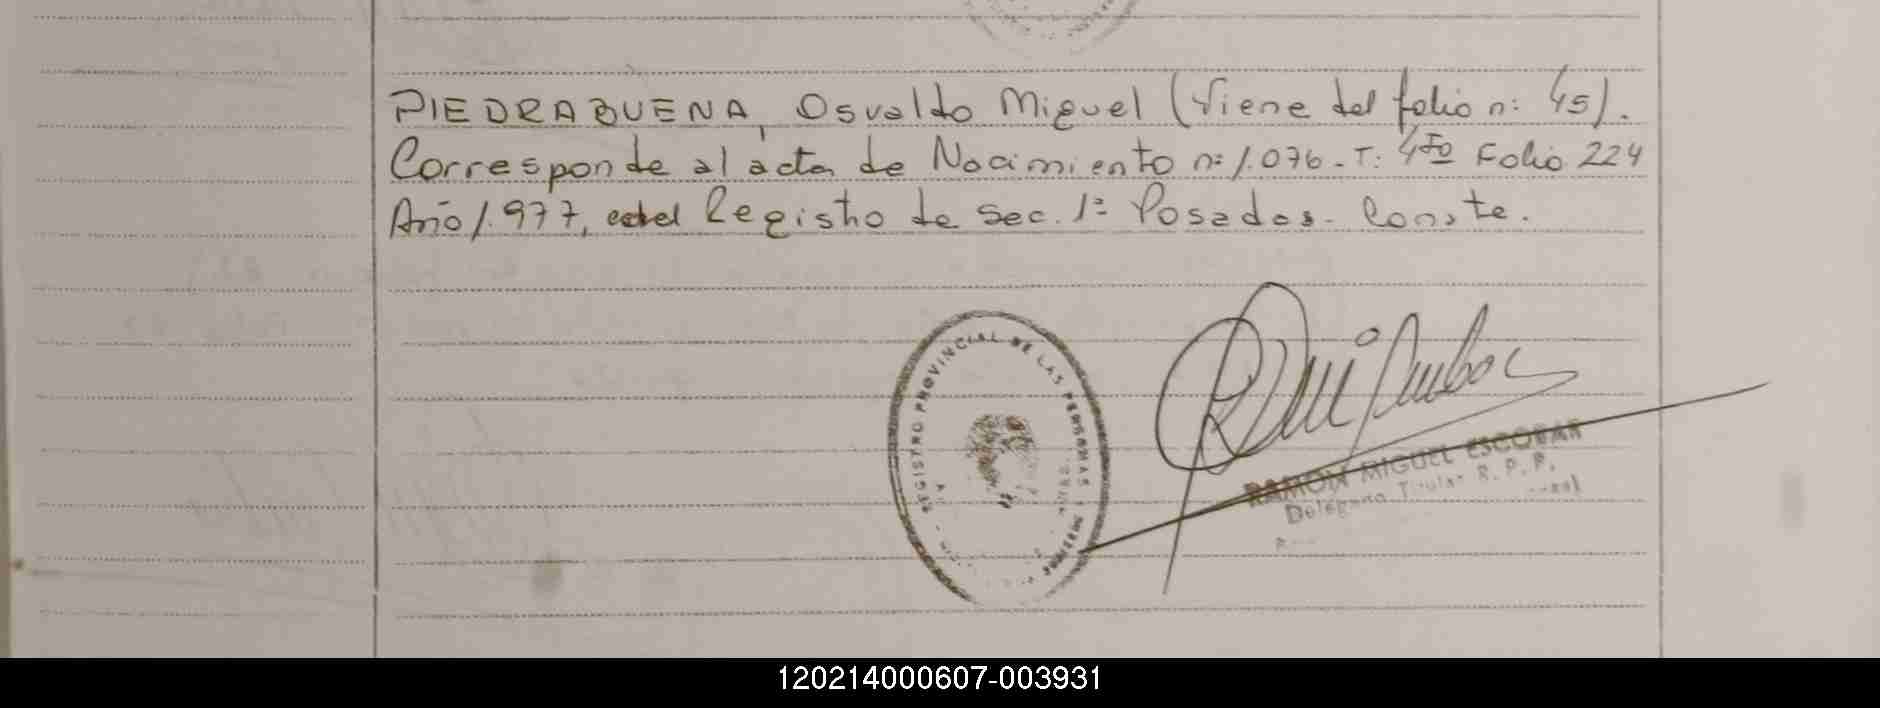 PIEDRABUENA, Osvaldo Miguel (Viene del folio n: 45).
Corresponde al acta de Nacimiento n: 1.076 - T: 4to Folio 224
Año 1.977, del Registro de Sec. 1ª Posadas. Conste.
REGISTRO PROVINCIAL DE LAS PERSONAS
RAMON MIGUEL ESCOBAR
Delegado Titular R. P. P.
120214000607-003931